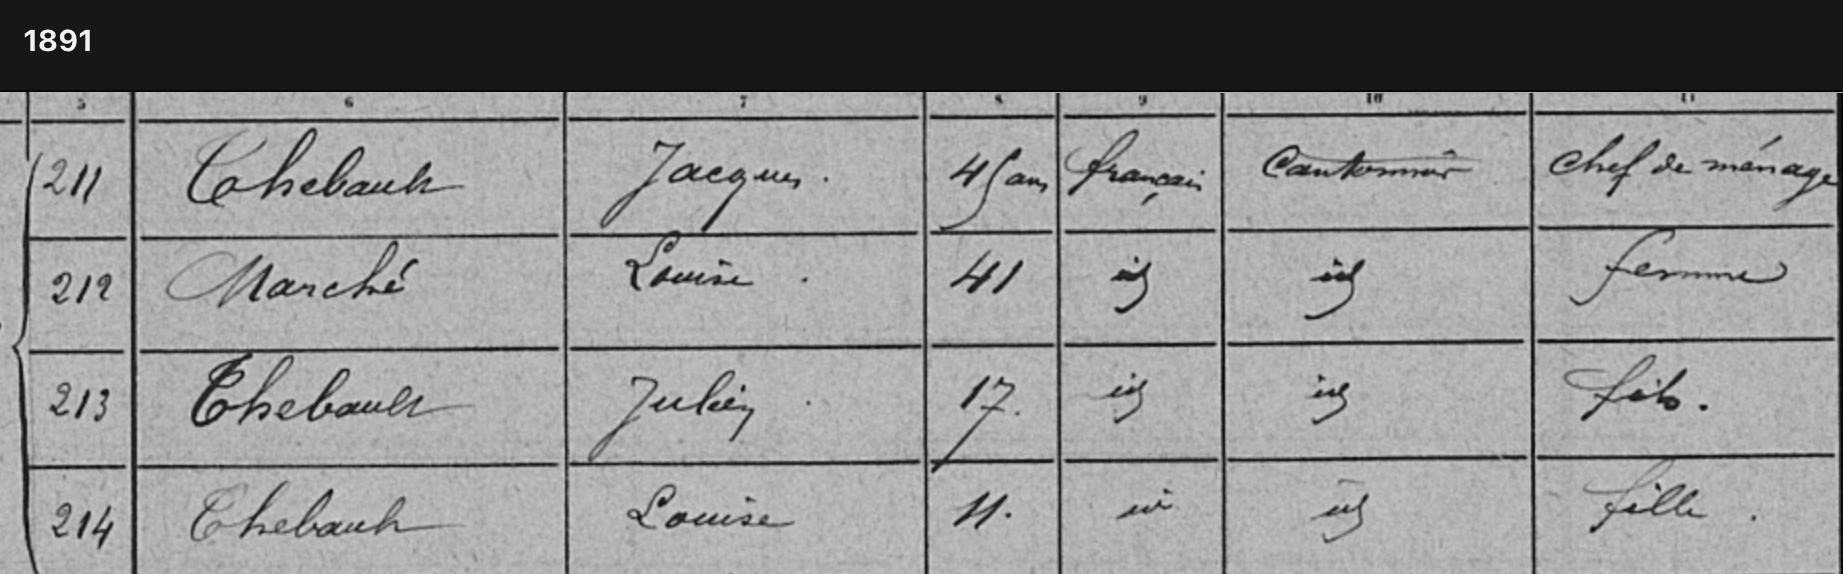 1891
5 6 7 8 9 10 11
211 Thebault Jacques. 45 ans français Cantonnier chef de ménage
212 Marché Louise. 41 id id femme
213 Thebault Julien. 17. id id fils.
214 Thebault Louise 11. id id fille.